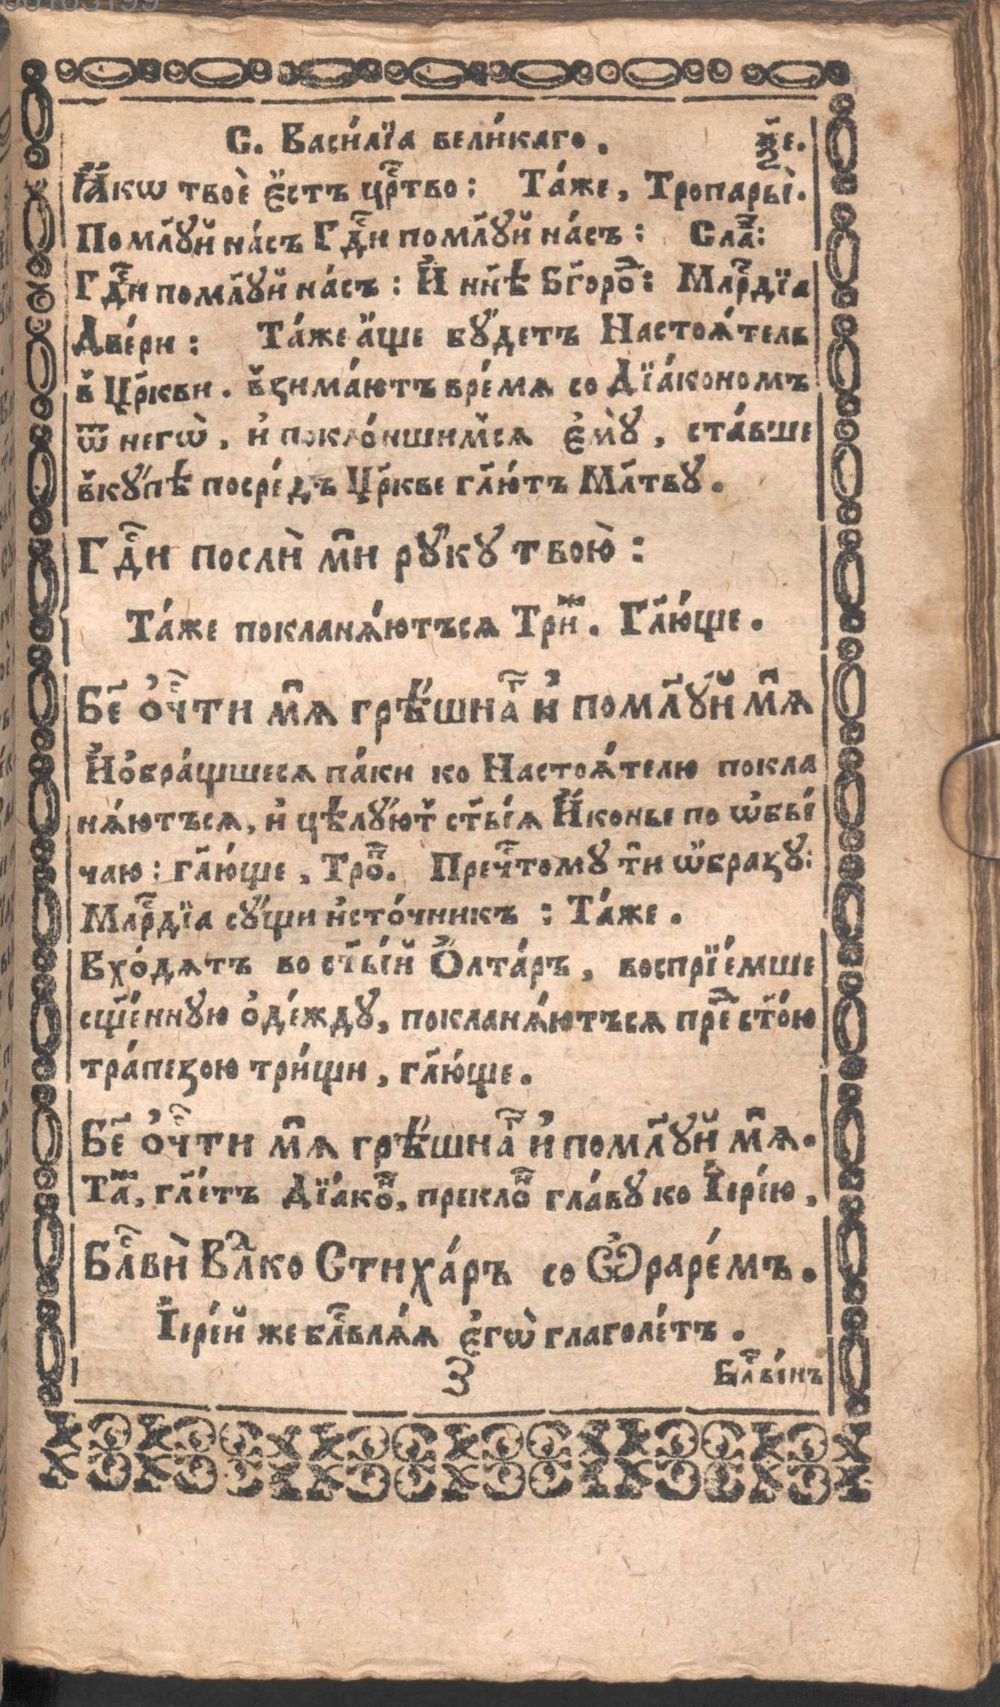 С. Васи́лїа вели́каго. ѯ҃е.
Ꙗ҆́кѡ твоѐ є҆́стъ црⷭ҇тво: Та́же, Тропарьѝ.
Помл҃ꙋй на́съ Гдⷭ҇и помл҃ꙋй на́съ: Слаⷡ҇:
Гдⷭ҇и помл҃ꙋй на́съ: И҆ нн҃ѣ Бг҃ороⷣ: Млрⷭ҇дїа
Две́ри: Та́же а҆́ще бꙋ́детъ Настоѧ́тель
в̾ Цр҃кви. в̾зима́ютъ вре́мѧ со Дїа́кономъ
ѿ негѡ̀, и҆ покло́ншимсѧ є҆мꙋ̀, ста́вше
в̾кꙋ́пѣ посре́дъ Цр҃кве гл҃ютъ Мл҃твꙋ.
Гдⷭ҇и послѝ мѝ рꙋкꙋ твою̀:
Та́же покланѧ́ютъсѧ Триⷤ. Гл҃юще.
Бж҃е ѻ҆чⷭ҇ти мѧ̀ грѣшнаⷢ҇ и҆ помл҃ꙋй мѧ̀
И҆ ѻ҆бра́щшесѧ па́ки ко Настоѧ́телю покла
нѧ́ютъсѧ, и҆ цѣлꙋ́ют̾ ст҃ы́ѧ И҆ко́ны по ѡ҆бы́
чаю: гл҃юще, Троⷫ҇. Пречⷭ҇томꙋ тѝ ѡ҆́бразꙋ:
Млрⷭ҇дїа сꙋ́щи и҆сто́чникъ: Та́же.
Вхо́дѧтъ во ст҃ы́й Ѻ҆лта́ръ, воспрїе́мше
сщ҃е́ннꙋю ѻ҆де́ждꙋ, покланѧ́ютъсѧ преⷣ ст҃о́ю
тра́пезою три́щи, гл҃юще.
Бж҃е ѻ҆чⷭ҇ти мѧ̀ грѣшнаⷢ҇ и҆ помл҃ꙋй мѧ̀.
Таⷤ, гл҃етъ Дїа́коⷩ, преклоⷩ гла́вꙋ ко І҆ере́ю,
Блⷭ҇вѝ Влⷣко Стиха́ръ со Ѡ҆раре́мъ.
І҆ере́й же блⷭ҇влѧ́ѧ є҆гѡ̀ глаголе́тъ.
З Блⷭ҇ве́нъ